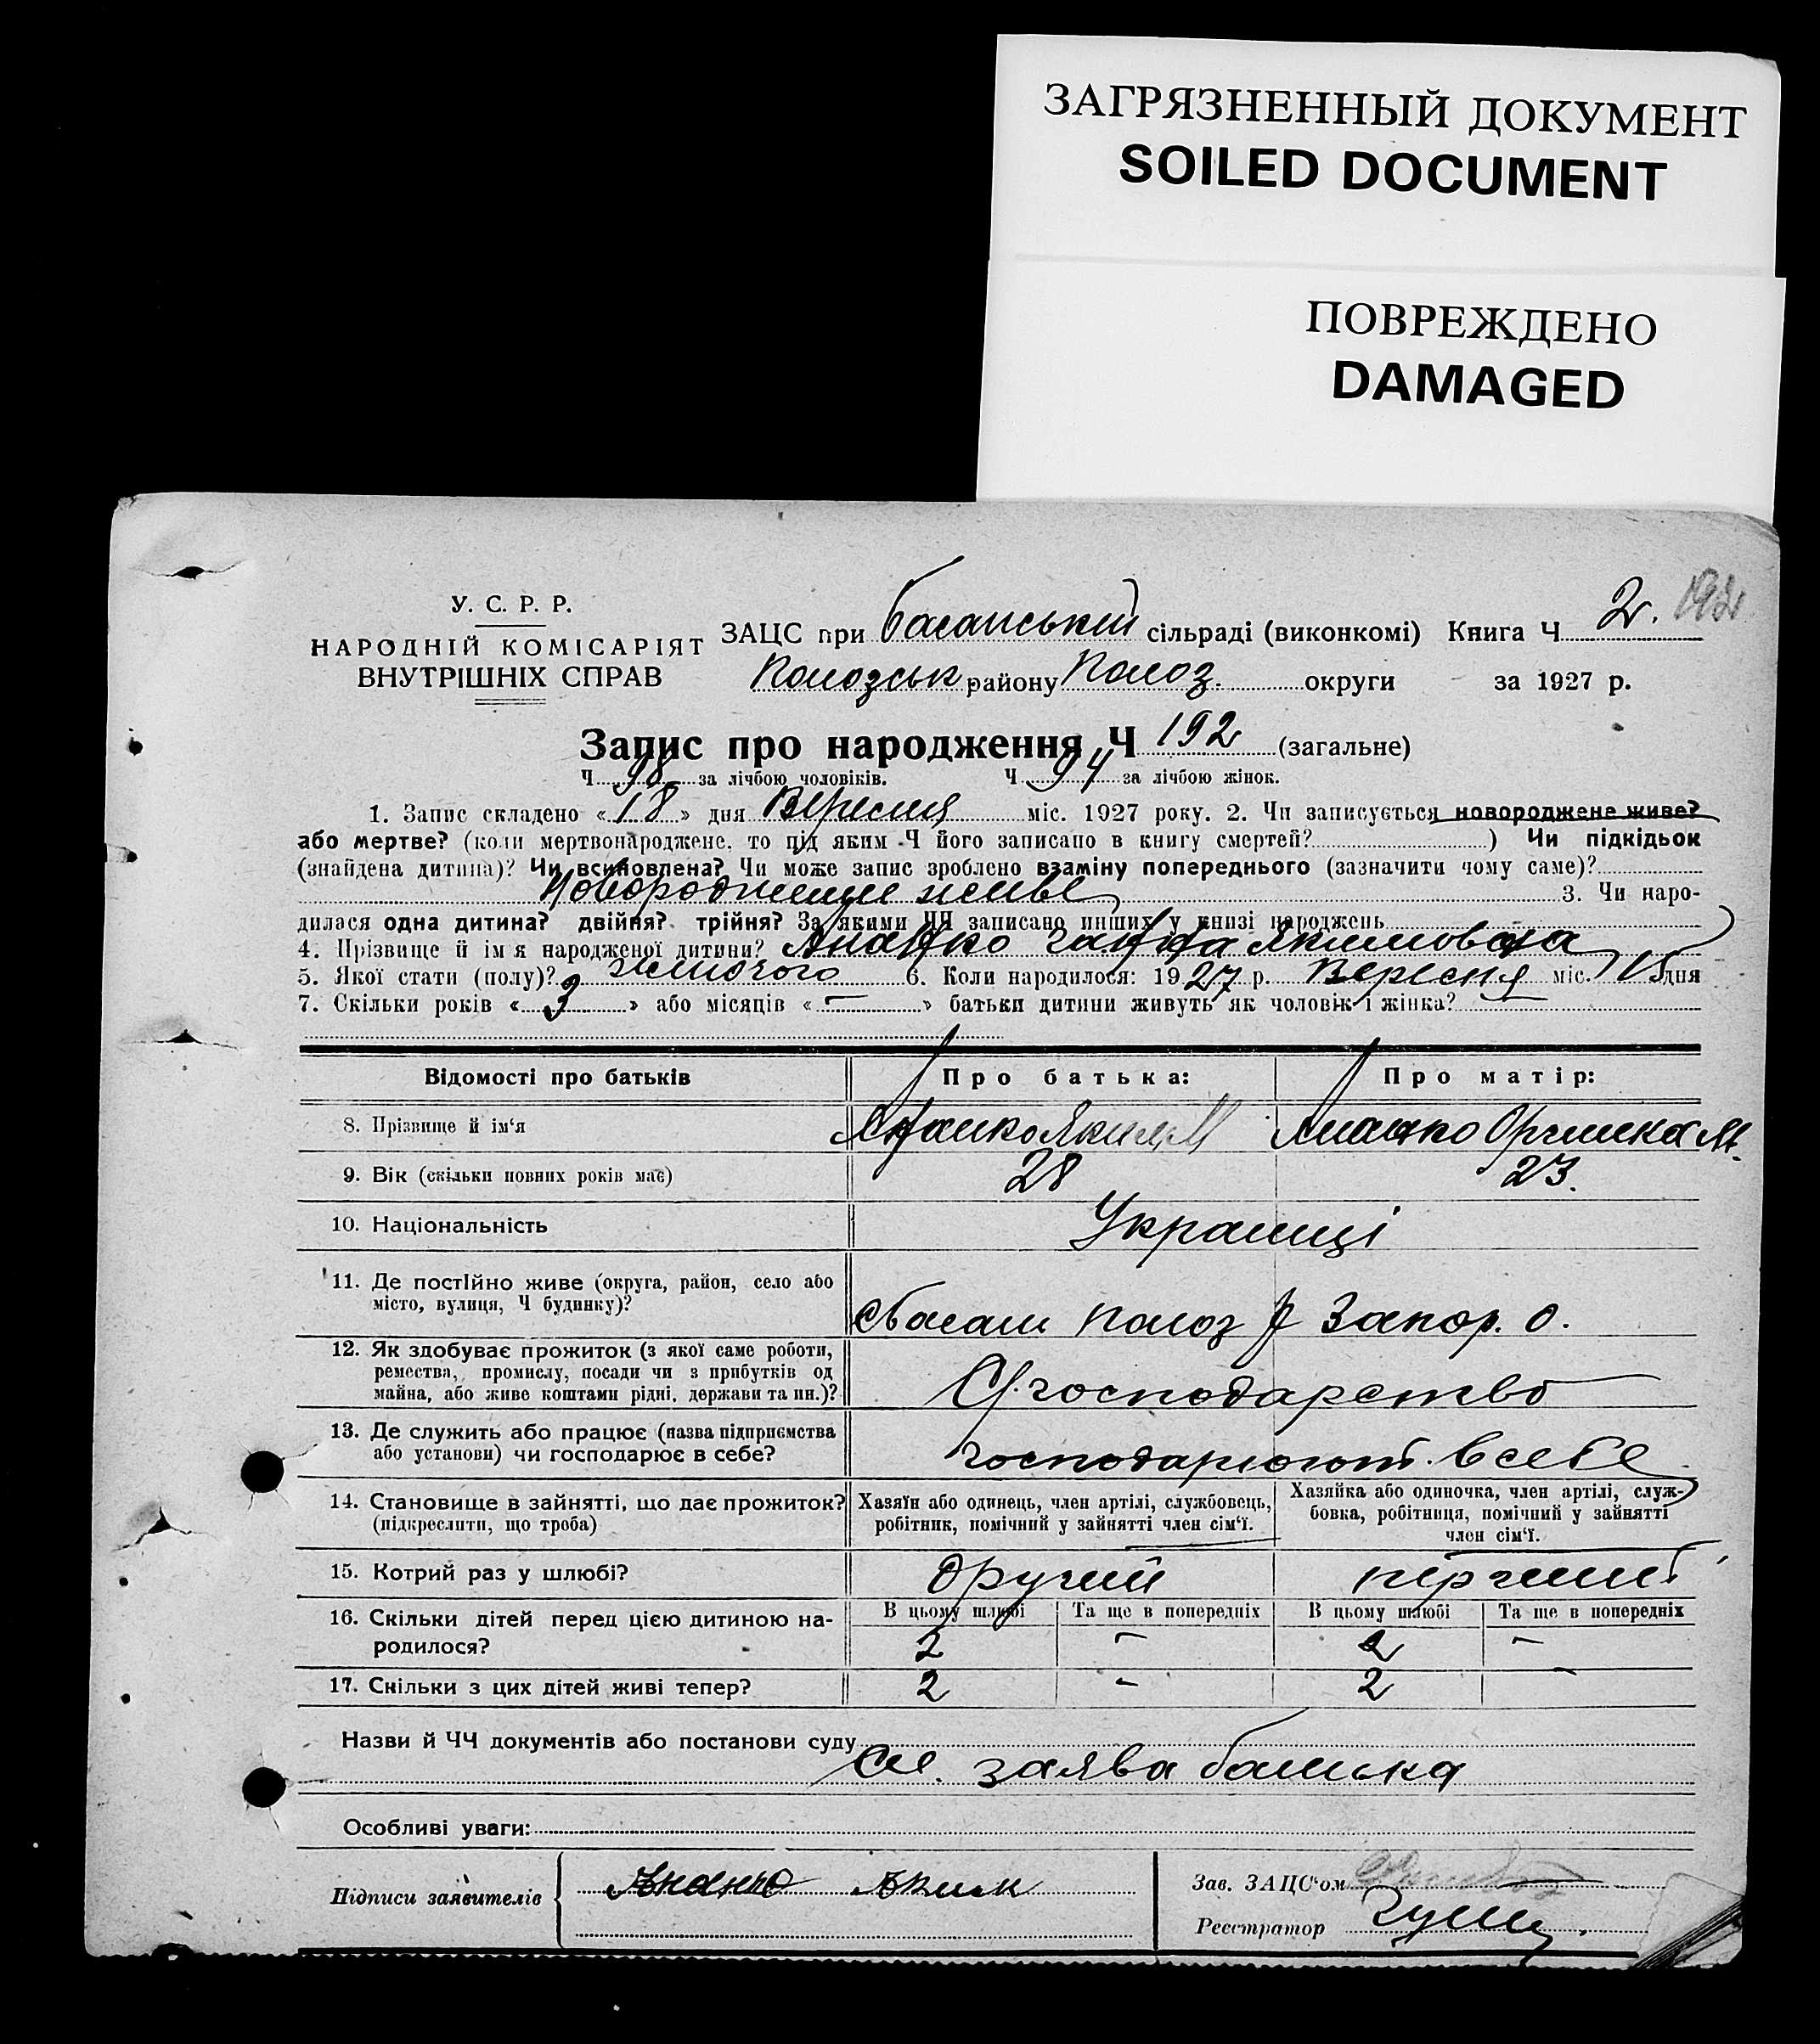 ЗАГРЯЗНЕННЫЙ ДОКУМЕНТ
SOILED DOCUMENT
ПОВРЕЖДЕНО
DAMAGED
У. С. Р. Р.
НАРОДНІЙ КОМІСАРІЯТ
ВНУТРІШНІХ СПРАВ
ЗАЦС при Басанський сільраді (виконкомі) Книга Ч 2. 192
Пологськ району Полог. округи за 1927 р.
Запис про народження Ч 192 (загальне)
Ч 98 за лічбою чоловіків. Ч 94 за лічбою жінок.
1. Запис складено «18» дня Вересня міс. 1927 року. 2. Чи записується новороджене живе?
або мертве? (коли мертвонароджене, то під яким Ч його записано в книгу смертей? ) Чи підкідьок
(знайдена дитина)? Чи всиновлена? Чи може запис зроблено взаміну попереднього (зазначити чому саме)?
Новородженне живе 3. Чи наро-
дилася одна дитина? двійня? трійня? За якими ЧЧ записано инших у книзі народжень
4. Прізвище й імя народженої дитини? Ананко Якимовна
5. Якої стати (полу)? жиночого 6. Коли народилося: 1927 р. Вересня міс. 15 дня
7. Скільки років «3» або місяців «–» батьки дитини живуть як чоловік і жінка?
Відомості про батьків Про батька: Про матір:
8. Прізвище й ім‘я Ананко Яким М Ананко М.
9. Вік (скільки повних років має) 28 23.
10. Національність Украинці
11. Де постІйно живе (округа, район, село або
місто, вулиця, Ч будинку)?
с Басань Полог р Запор. о.
12. Як здобуває прожиток (з якої саме роботи,
ремества, промислу, посади чи з прибутків од
майна, або живе коштами рідні, держави та ин.)?
С/господарство
13. Де служить або працює (назва підприємства
або установи) чи господарює в себе?
господарюют в себе
14. Становище в зайнятті, що дає прожиток?
(підкреслити, що треба)
Хазяїн або одинець, член артілі, службовець,
робітник, помічний у зайнятті член сім‘ї.
Хазяйка або одиночка, член артілі, служ-
бовка, робітниця, помічний у зайнятті
член сім‘ї.
15. Котрий раз у шлюбі? другий перший
16. Скільки дітей перед цією дитиною на-
родилося?
В цьому шлюбі Та ще в попередніх В цьому шлюбі Та ще в попередніх
2 – 2 –
17. Скільки з цих дітей живі тепер? 2 - 2 -
Назви й ЧЧ документів або постанови суду
заява батька
Особливі уваги:
Підписи заявителів Ананко Яким
Зав. ЗАЦС‘ом
Реєстратор